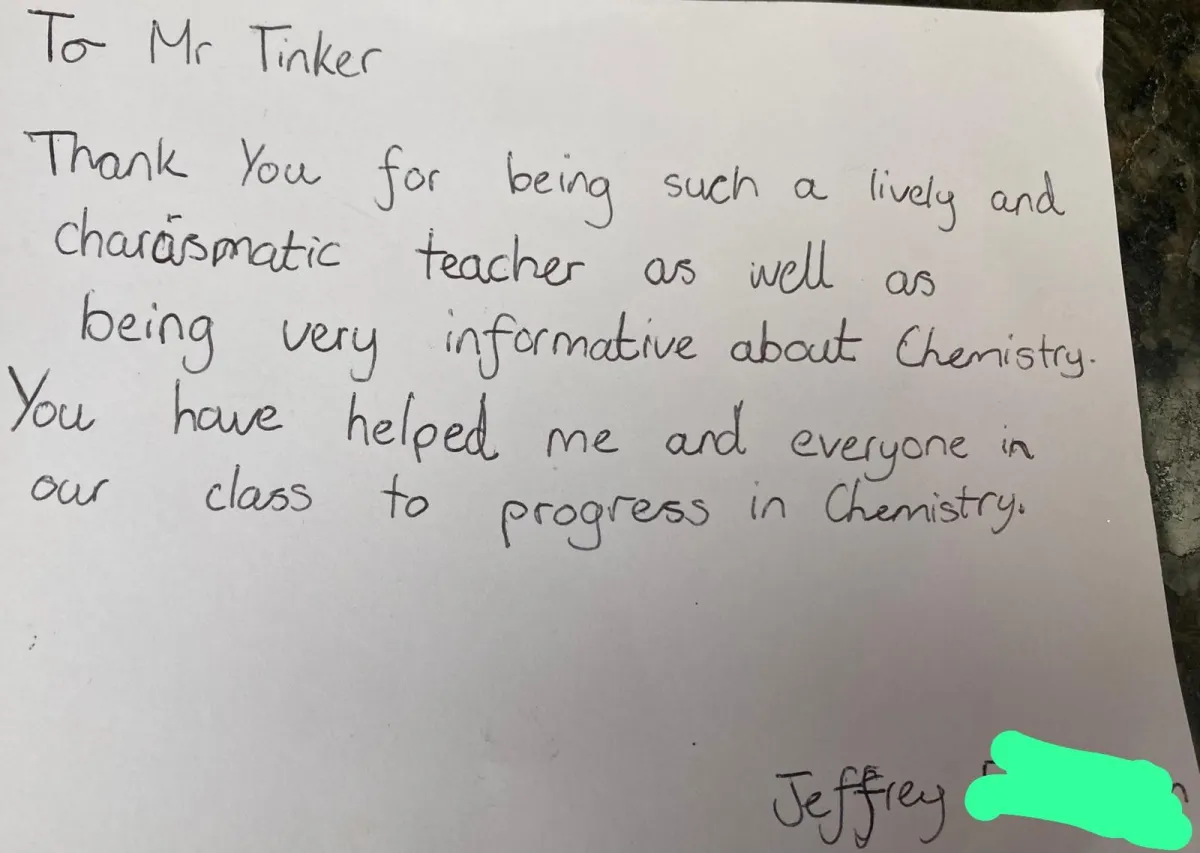 To Mr Tinker
Thank You for being such a lively and
charaismatic teacher as well as
being very informative about Chemistry.
You have helped me and everyone in
our class to progress in Chemistry.
Jeffrey